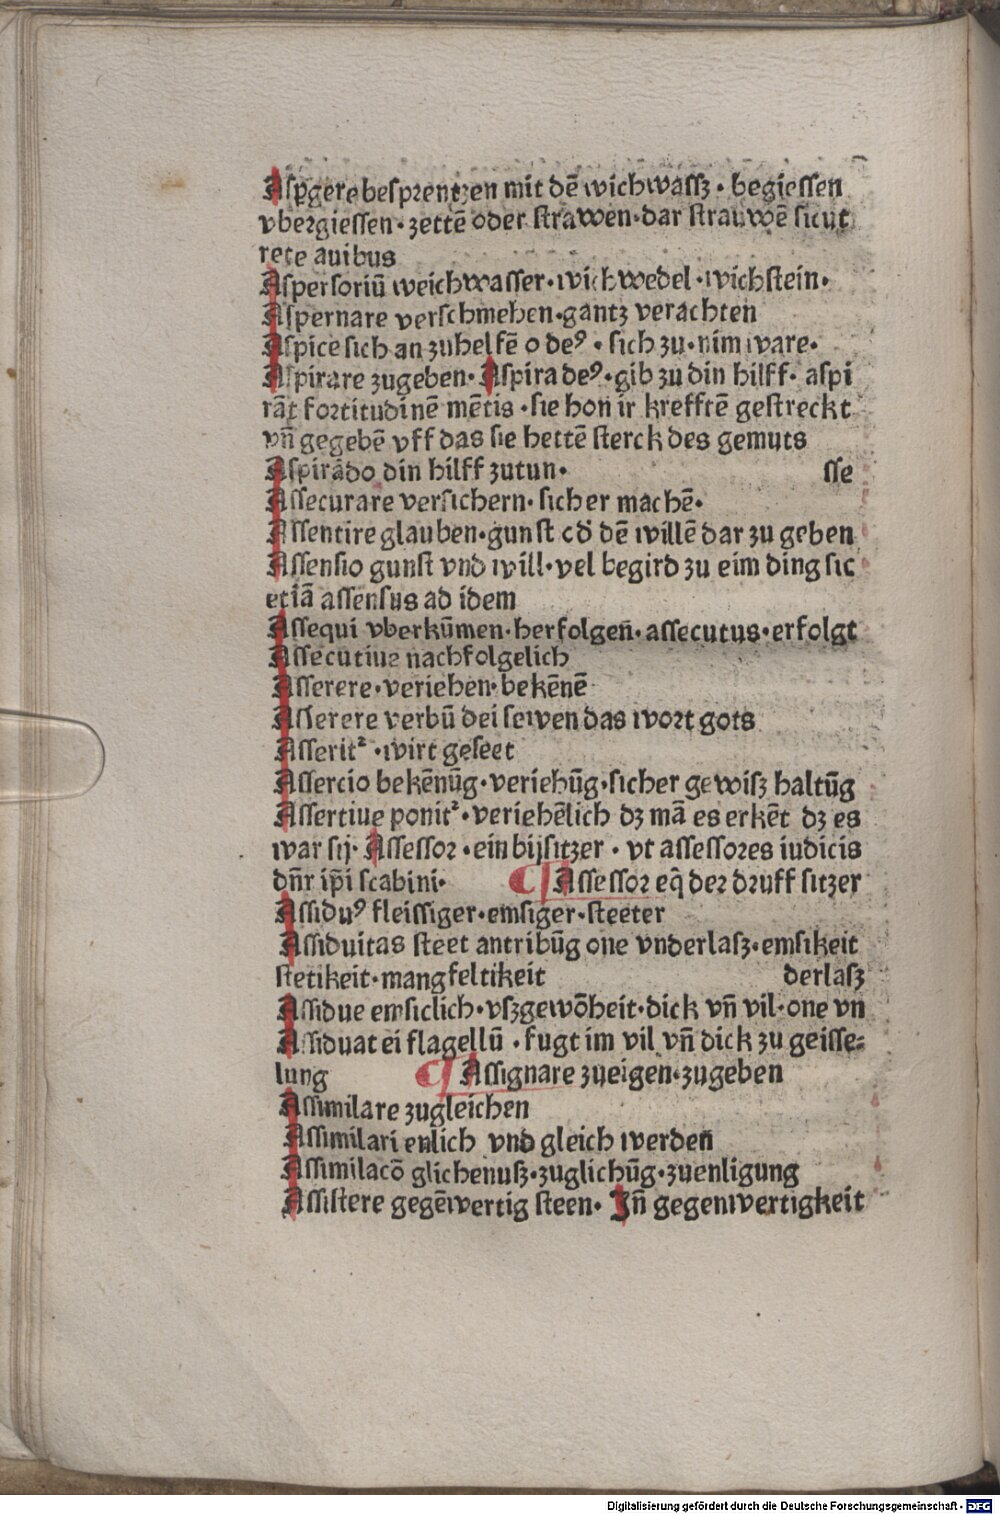 Aſꝑgere beſprentzen mit dē wichwaſſꝫ · begieſſen
vbergieſſen · zettē oder ſtrawen · dar ſtrauwē ſicut
rete auibus
Aſperſoriū weichwaſſer · wichwedel · wichſtein ·
Aſpernare verſchmehen · gantz verachten
Aſpice ſich an zuhelfē o deꝰ · ſich zu · nim ware ·
Aſpirare zugeben · Aſpira deꝰ · gib zu din hilff · aſpi
rāt fortitudinē mētis · ſie hon ir krefftē geſtreckt
vn̄ gegebē vff das ſie hettē ſterck des gemuts
Aſpirādo din hilff zutun · ſſe
Aſſecurare verſichern · ſicher machē ·
Aſſentire glauben · gunſt dē willē dar zu geben
Aſſenſio gunſt vnd will · vel begird zu eim ding ſic
etiā aſſenſus ad idem
Aſſequi vberkūmen · herfolgen̄ · aſſecutus · erfolgt
Aſſecutiue nachfolgelich
Aſſerere · veriehen · bekēnē
Aſſerere verbū dei ſewen das wort gots
Aſſeritᷣ · wirt geſeet
Aſſercio bekēnūg · veriehūg · ſicher gewiſꝫ haltūg
Aſſertiue ponitᷣ · veriehēlich dꝫ mā es erkēt dꝫ es
war ſij · Aſſeſſor · ein bijſitzer · vt aſſeſſores iudicis
dn̄r ip̄i ſcabini · ¶ Aſſeſſor eq̄ der druff ſitzer
Aſſiduꝰ fleiſſiger · emſiger · ſteeter
Aſſiduitas ſteet antribūg one vnderlaſꝫ · emſikeit
ſtetikeit · mangfeltikeit derlaſꝫ
Aſſidue emſiclich · vſꝫgewōheit · dick vn̄ vil · one vn
Aſſiduat ei flagellū · fugt im vil vn̄ dick zu geiſſe⸗
lung ¶ Aſſignare zueigen · zugeben
Aſſimilare zugleichen
Aſſimilari enlich vnd gleich werden
Aſſimilacō glichenuſꝫ · zuglichūg · zuenligung
Aſſiſtere gegēwertig ſteen · In̄ gegenwertigkeit
Digitalisierung gefördert durch die Deutsche Forschungsgemeinschaft - DFG